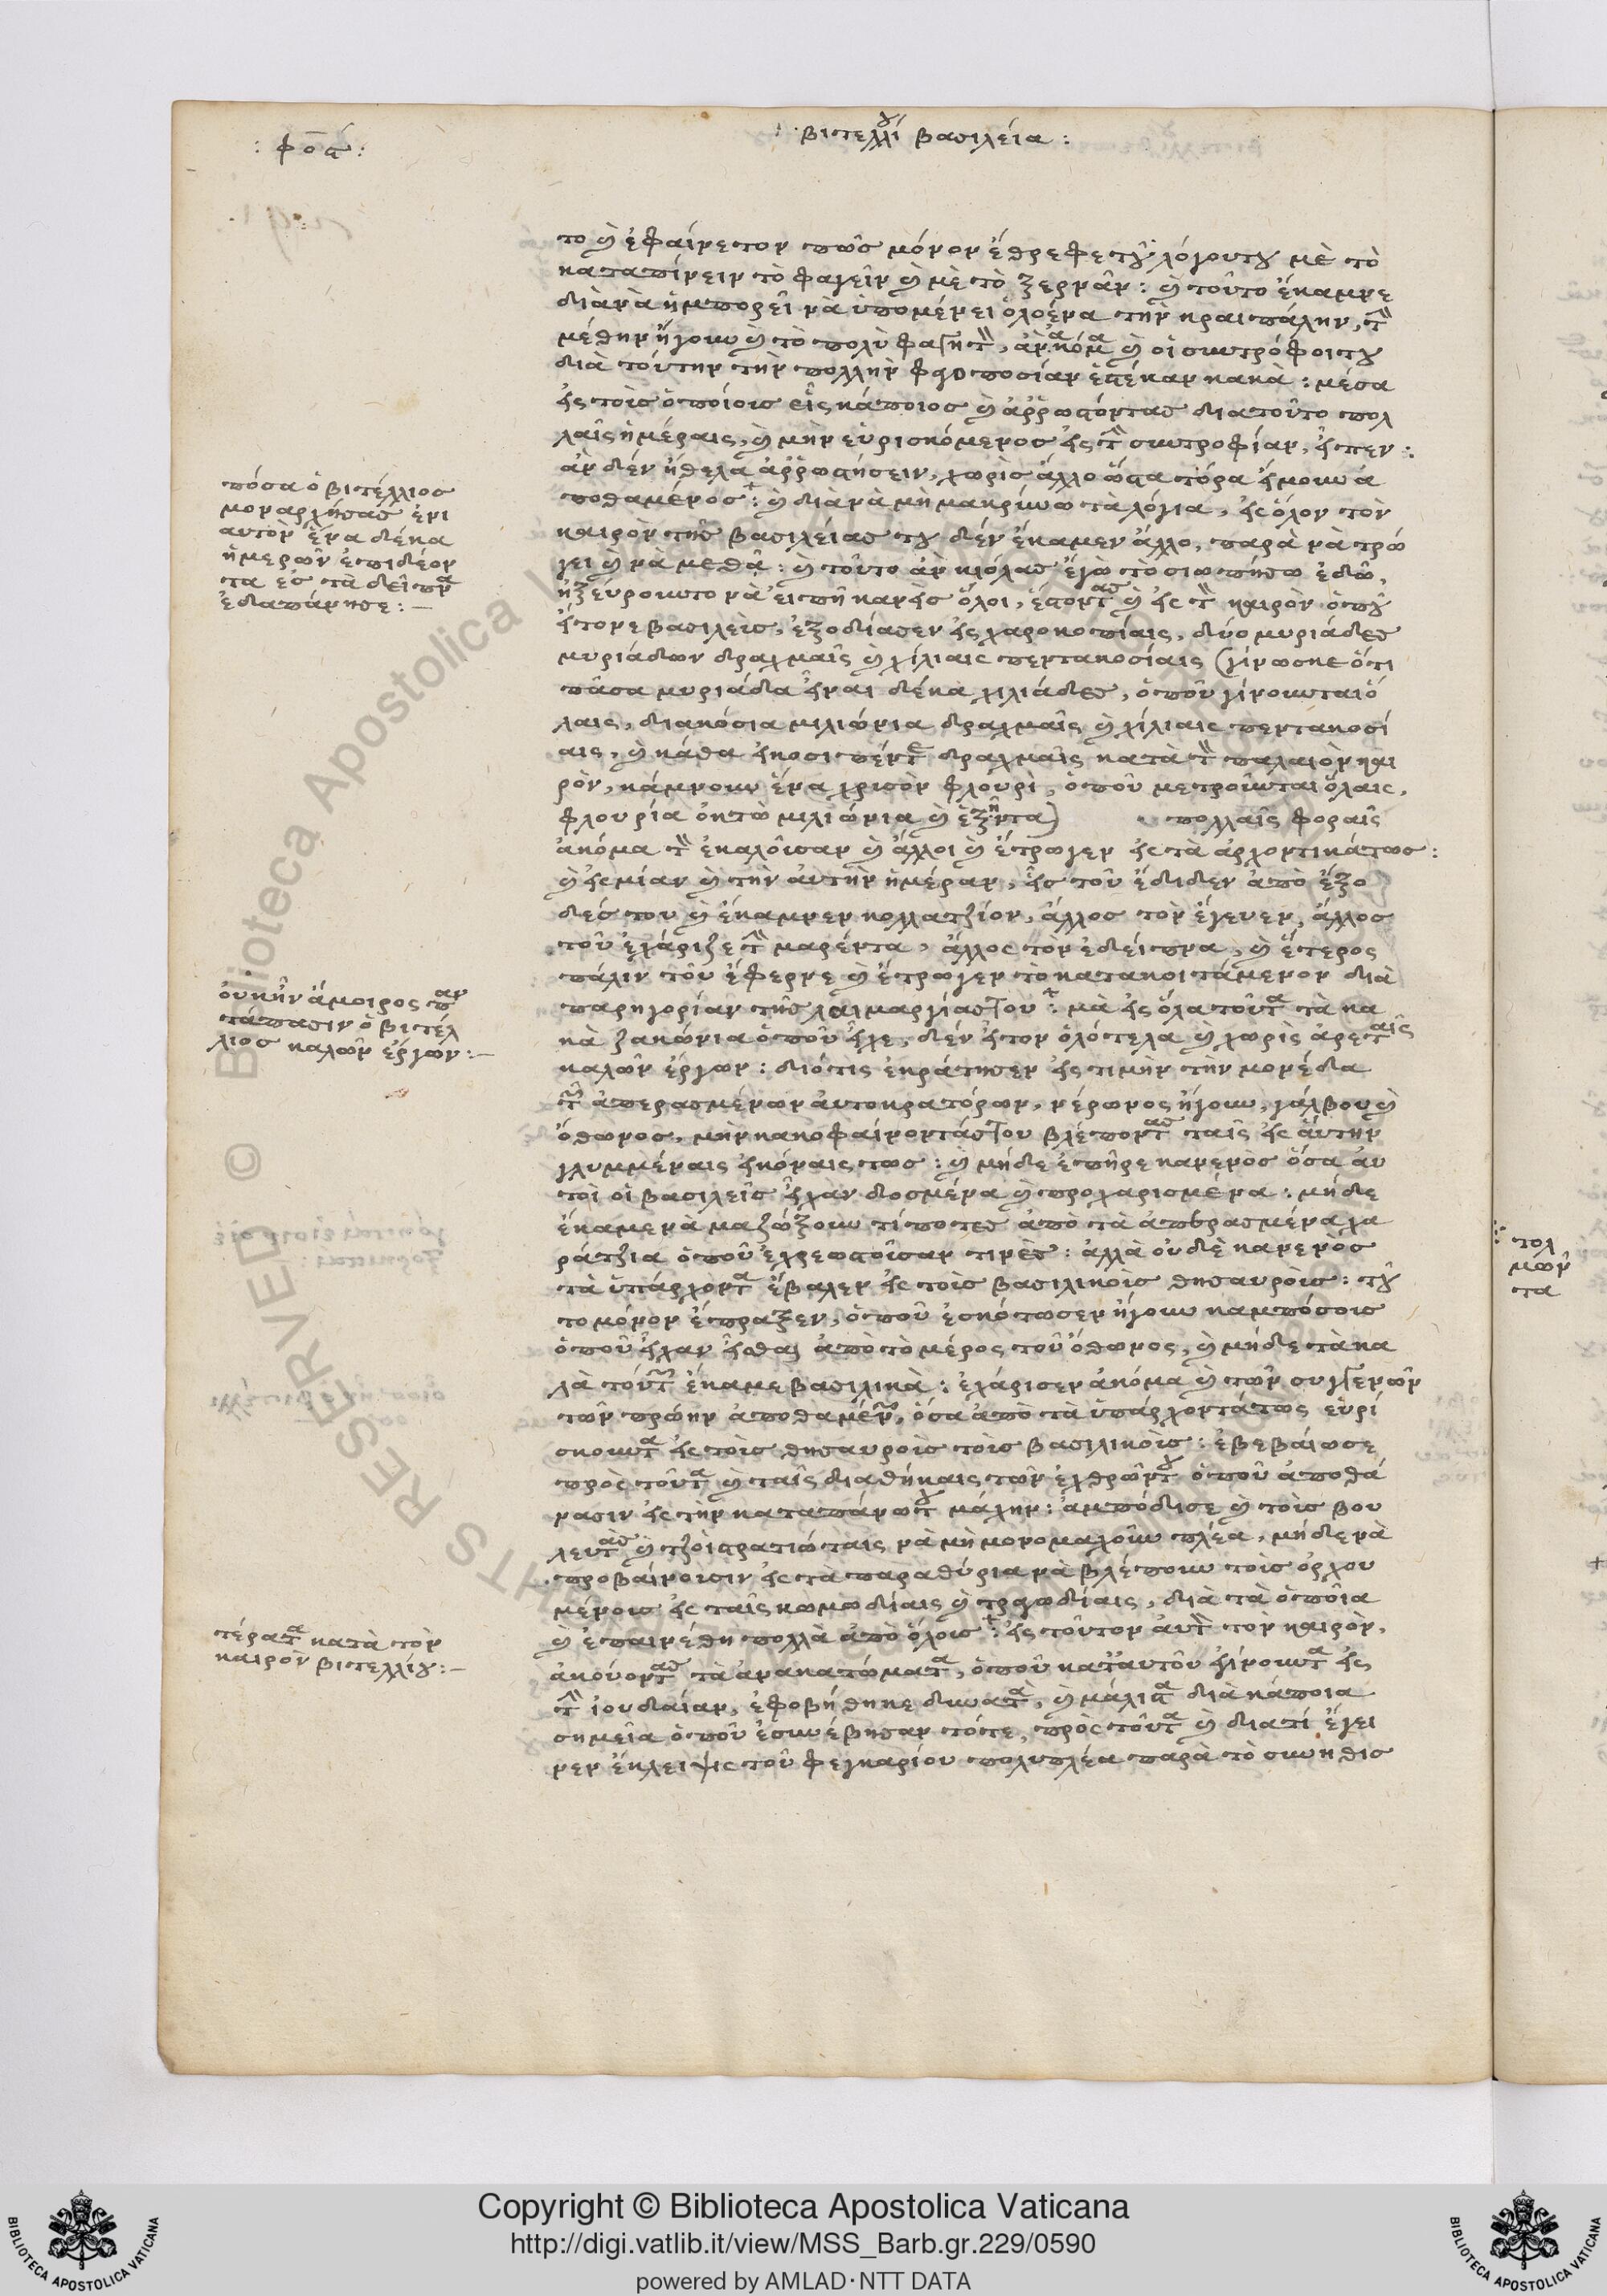 : φος :
: βιτελλίου βασιλεία :
το καὶ ἐφαίνετον πῶς μόνον ἔθρεφε τοῦ λόγουτου μὲ τὸ
καταπίνειν τὸ φαγεῖν καὶ μὲ τὸ ξερνᾶν : καὶ τοῦτο ἔκαμνε
διὰ νὰ ἠμπορεῖ νὰ ὑπομένει ὁλοένα τὴν κραιπάλην, τὴν
μέθην ἤγουν καὶ τὸ πολὺ φαγητὸν, ἀνακόμα καὶ οἱ συντρόφοιτου
διὰ τούτην τὴν πολλὴν φαγοποσίαν ἐστέκαν κακὰ : μέσα
εἰς τοὶς ὁποίοις εἷς κάποιος καὶ ἀῤῥωστόντας διατοῦτο πολ
λαῖς ἡμέραις, καὶ μὴν εὑρισκόμενος εἰς τὴν συντροφίαν, εἶπεν :
ἀν δέν ἤθελα ἀῤῥωστήσειν, χωρὶς ἄλλο ὥστα τόρα εἴμουν ἀ
ποθαμένος : καὶ διὰ νὰ μὴ μακρύνω τὰ λόγια, εἰς ὅλον τὸν
καιρὸν τῆς βασιλείας του δέν ἔκαμεν ἄλλο, παρὰ νὰ τρώ
γει καὶ νὰ μεθᾶ : καὶ τοῦτο ἀν κιόλας ἐγὼ τὸ σιωπήσω ἐδῶ,
ἠξεύρουντο νὰ εἰπῆ κανεὶς ὅλοι, ἔστοντας καὶ εἰς τὸν καιρὸν ὁποῦ
εἶτονε βασιλεὺς, ἐξοδίασεν εἰς χαροκοπίαις, δύο μυριάδες
μυριάδων δραχμαῖς καὶ χίλιαις πεντακοσίαις (γίνωσκε ὅτι
πᾶσα μυριάδα εἶναι δέκα χιλιάδες, ὁποῦ γίνουνται ὅ
λαις, διακόσια μιλιώνια δραχμαῖς καὶ χίλιαις πεντακοσί
αις, καὶ κάθα εἰκοσι πέντε δραχμαῖς κατὰ τὸν παλαιὸν και
ρὸν, κάμνουν ἕνα χρισὸν φλουρὶ, ὁποῦ μετροῦνται ὅλαις,
φλουρία ὀκτὼ μιλιώνια καὶ ἑξῆντα) πολλαῖς φοραῖς
ἀκόμα τὸν ἐκαλοῦσαν καὶ ἄλλοι καὶ ἔτρωγεν εἰς τὰ ἀρχοντικάτως :
καὶ εἰς μίαν καὶ τὴν αὐτὴν ἡμέραν, εἷς τοῦ ἔδιδεν ἀπὸ ἐξο
δές του καὶ ἔκαμνεν κολλατζίον, ἄλλος τὸν ἔγευεν, ἄλλος
τοῦ ἐχάριζε τὴν μαρέντα, ἄλλος τὸν ἐδείπνα, καὶ ἕτερος
πάλιν τοῦ ἔφερνε καὶ ἔτρωγεν τὸ κατακοιτάμενον διὰ
παρηγορίαν τῆς λαιμαργίαςτου : μὰ εἰς ὅλα τοῦτα τὰ κα
κὰ ζακώνια ὁποῦ εἶχε, δέν εἶτον ὁλότελα καὶ χωρὶς ἀρεταῖς
καλῶν ἔργων : διότις ἐκράτησεν εἰς τιμὴν τὴν μονέδα
τῶν ἀπερασμένων αὐτοκρατόρων, νέρωνος ἤγουν, γάλβου καὶ
ὄθωνος, μὴν κακοφαίνοντάςτου βλέποντας ταῖς εἰς αὐτὴν
γλυμμέναις εἰκόναις τως : καὶ μήδε ἐπῆρε κανενὸς ὅσα αὐ
τοὶ οἱ βασιλεῖς εἶχαν δοσμένα καὶ προχαρισμένα : μήδε
ἔκαμε νὰ μαζώξουν τίποτες ἀπὸ τὰ ἀπερασμένα χα
ράτζια ὁποῦ ἐχρεωστοῦσαν τινὲς : ἀλλὰ οὐδὲ κανενὸς
τὰ ὑπάρχοντα ἔβαλεν εἰς τοὶς βασιλικοὶς θησαυροὶς : τοῦ
το μόνον ἔπραξεν, ὁποῦ ἐσκότωσεν ἤγουν καμπόσοις
ὁποῦ εἶχαν εἶσθαι ἀπὸ τὸ μέρος τοῦ ὄθωνος, καὶ μήδε τὰ κα
λὰ τούτων ἔκαμε βασιλικὰ : ἐχάρισεν ἀκόμα καὶ τῶν συγγενῶν
τῶν πρώην ἀποθαμένων, ὅσα ἀπὸ τὰ ὑπάρχοντάτως εὑρί
σκουντα εἰς τοὶς θησαυροὶς τοὶς βασιλικοὶς : ἐβεβαίωσε
πρὸς τοῦτα καὶ ταῖς διαθήκαις τῶν ἐχθρῶντου ὁποῦ ἀποθά
νασιν εἰς τὴν καταπάνωτου μάχην : ἀμπόδισε καὶ τοὶς βου
λευτὰς καὶ τζοὶ στρατιώταις νὰ μὴ μονομαχοῦν πλέα, μήδε νὰ
προβαίνουσιν εἰς τὰ παραθύρια νὰ βλέπουν τοὶς ὀρχου
μένοις εἰς ταῖς κωμωδίαις καὶ τραγωδίαις, διὰ τὰ ὁποῖα
καὶ ἐπαινέθη πολλὰ ἀπὸ ὅλοις : εἰς τοῦτον αὐτὸν τὸν καιρὸν,
ἀκούοντας τὰ ἀνακατώματα, ὁποῦ κατ' αὐτοῦ ἐγίνουντα εἰς
τὴν ἰουδαίαν, ἐφοβήθηκε δυνατὰ, καὶ μάλιστα διὰ κάποια
σημεῖα ὁποῦ ἐσυνέβησαν τότε, πρὸς τοῦτα καὶ διατί ἔγει
νεν ἔκλειψις τοῦ φεγκαρίου πολυπλέα παρὰ τὸ συνηθισ
πόσα ὁ βιτέλλιος
μοναρχήσας ἐνι
αυτὸν ἕνα δέκα
ἡμερῶν ἐπιδέον
τα εἰς τὰ δεῖπνα
ἐδαπάνησε : —
οὐκ ἦν ἄμοιρος παν
τάπασιν ὁ βιτέλ
λιος καλῶν ἔργων : —
τέρατα κατὰ τὸν
καιρὸν βιτελλίου : —
πολ
μῶν
τα
Copyright © Biblioteca Apostolica Vaticana
http://digi.vatlib.it/view/MSS_Barb.gr.229/0590
powered by AMLAD·NTT DATA
BIBLIOTECA APOSTOLICA VATICANA
BIBLIOTECA APOSTOLICA VATICANA